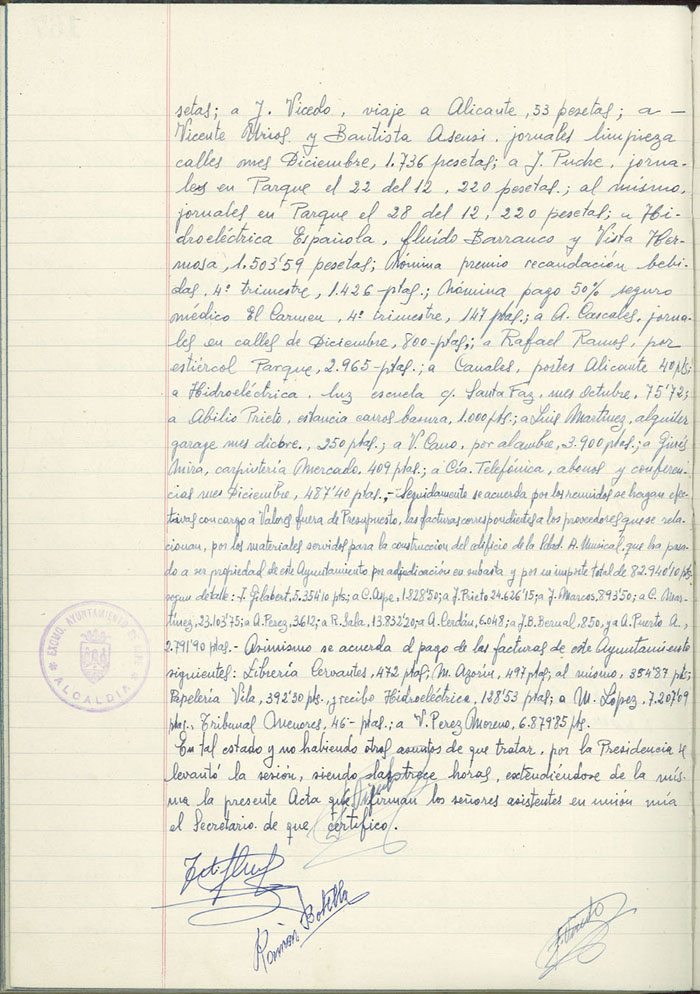 setas; a J. Vicedo, viaje a Alicante, 53 pesetas; a —
Vicente Urios y Bautista Asensi, jornales limpieza
calles mes Diciembre, 1.736 pesetas; a J. Puche, jorna-
les en Parque el 22 del 12, 220 pesetas.; al mismo,
jornales en Parque el 28 del 12, 220 pesetas; a Hi-
droeléctrica Española, fluído Barranco y Vista Her-
mosa, 1.503'59 pesetas; Nómina premio recaudación bebi-
das, 4º trimestre, 1.426-ptas.; Nómina pago 50% seguro
médico El Carmen, 4º trimestre, 147 ptas.; a A. Cascales, jorna-
les en calles de Diciembre, 800-ptas.; a Rafael Ramos, por
estiércol Parque, 2.965-ptas.; a Canales, portes Alicante 40 pts;
a Hidroeléctrica, luz escuela c/. Santa Faz, mes Octubre, 75'72;
a Abilio Prieto, estancia carros basura, 1.000 pts.; a Luis Martínez, alquiler
garage mes dicbre., 250 ptas.; a V. Cano, por alambre, 3.900 ptas.; a Ginés
Mira, carpintería Mercado, 409 ptas.; a Cía. Telefónica, abonos y conferen-
cias mes Diciembre, 487'40 ptas.,- Seguidamente se acuerda por los reunidos se hagan efec-
tivas con cargo a Valores fuera de Presupuesto, las facturas correspondientes a los proveedores que se rela-
cionan, por los materiales servidos para la construccion del edificio de la Sdad. A. Musical, que ha pasa-
do a ser propiedad de este Ayuntamiento por adjudicación en subasta y por un importe total de 82.940'10 pts
segun detalle: F. Gilabert, 5.354'10 pts; a C. Aspe, 1.228'50; a J. Prieto 24.626'15; a J. Marcos, 893'50; a C. Mar-
tinez, 23.103'75; a A. Perez, 3612; a R. Sala, 13.832'20; a A. Cerdán, 6.048; a J.B. Bernal, 850, y a A. Puerto A.,
2.791'90 ptas.- Asimismo se acuerda el pago de las facturas de este Ayuntamiento
siguientes: Librería Cervantes, 472 ptas; M. Azorín, 497 ptas; al mismo, 354'87 pts;
Papelería Vila, 392'30 pts., y recibo Hidroeléctrica, 128'53 ptas; a M. López, 7.207'09
ptas., Tribunal Menores, 46- ptas.; a V. Perez Moreno, 6.879'85 pts.
En tal estado y no habiendo otros asuntos de que tratar, por la Presidencia se
levantó la sesión, siendo las trece horas, extendiéndose de la mis-
ma la presente Acta que firman los señores asistentes en unión mía
el Secretario de que certifico.
Román Botella
EXCMO. AYUNTAMIENTO DE
ALCALDIA